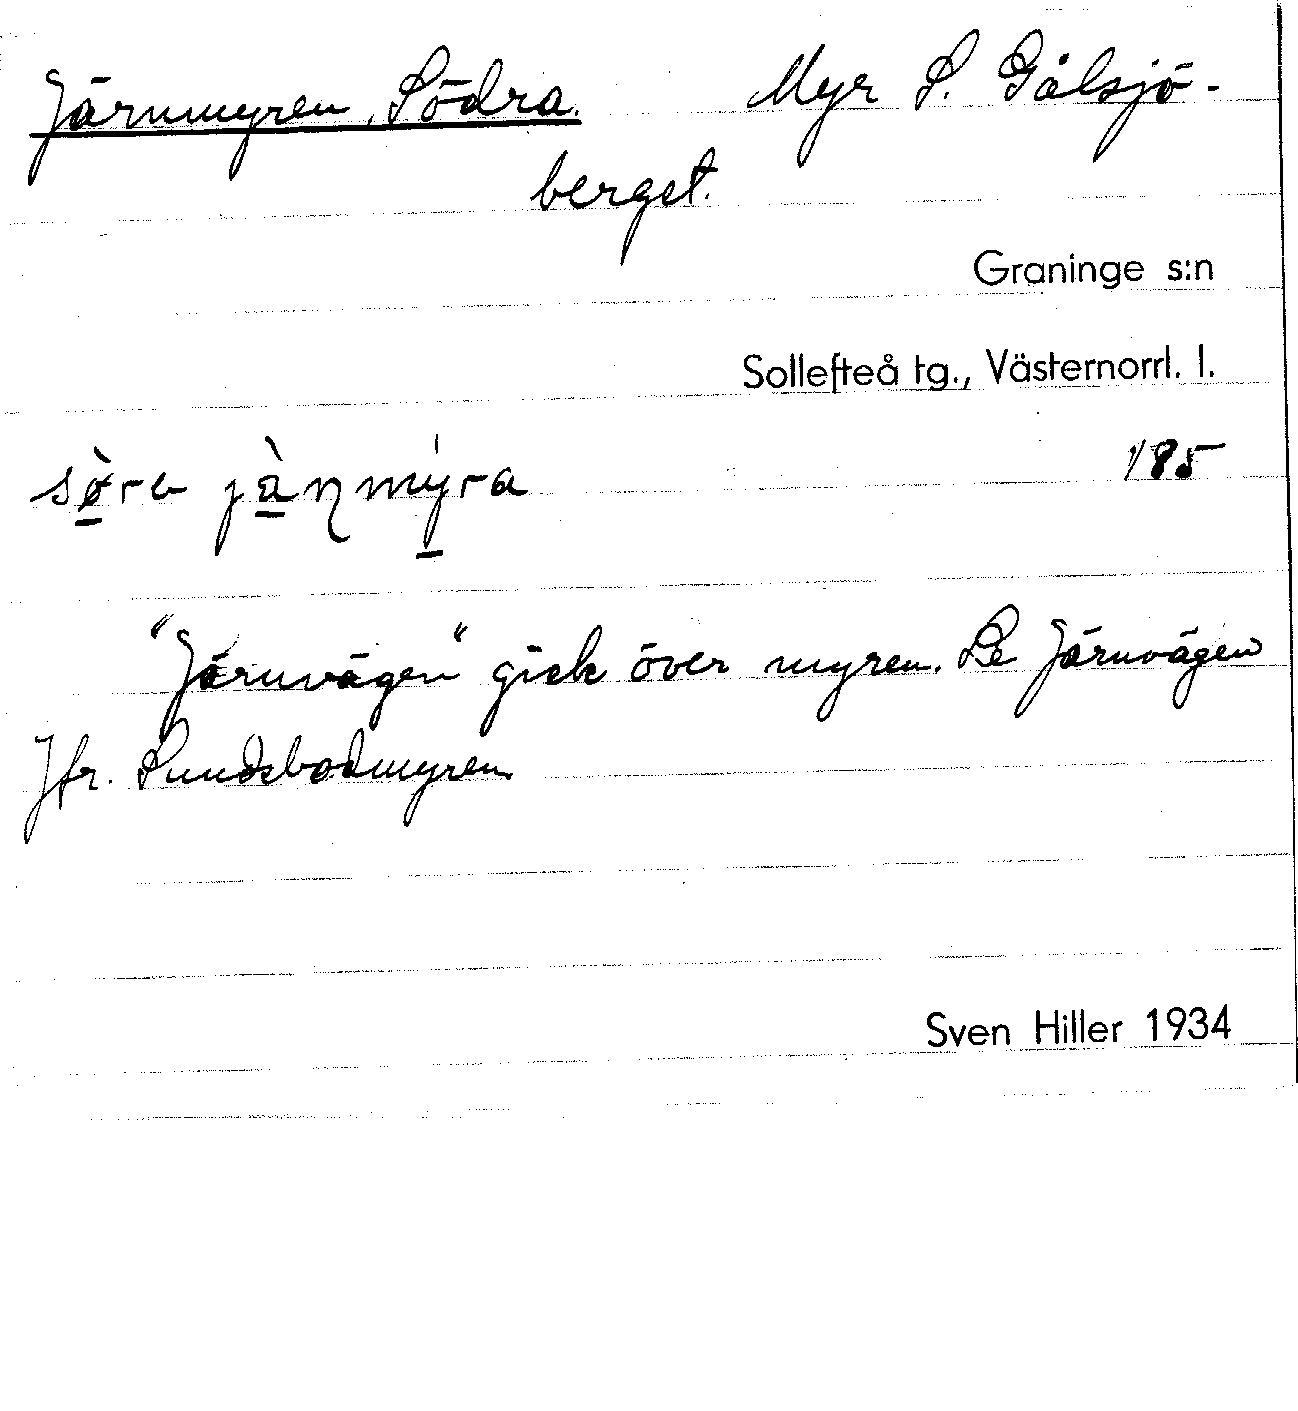 Järnmyren, Södra. Myr S. Gålsjö-
berget.
Graninge s:n
Sollefteå tg., Västernorrl. l.
sø̀rɐ jànmýra 185
"Järnvägen" gick över myren. Se Järnvägen
Jfr. Sundsbodmyren
Sven Hiller 1934